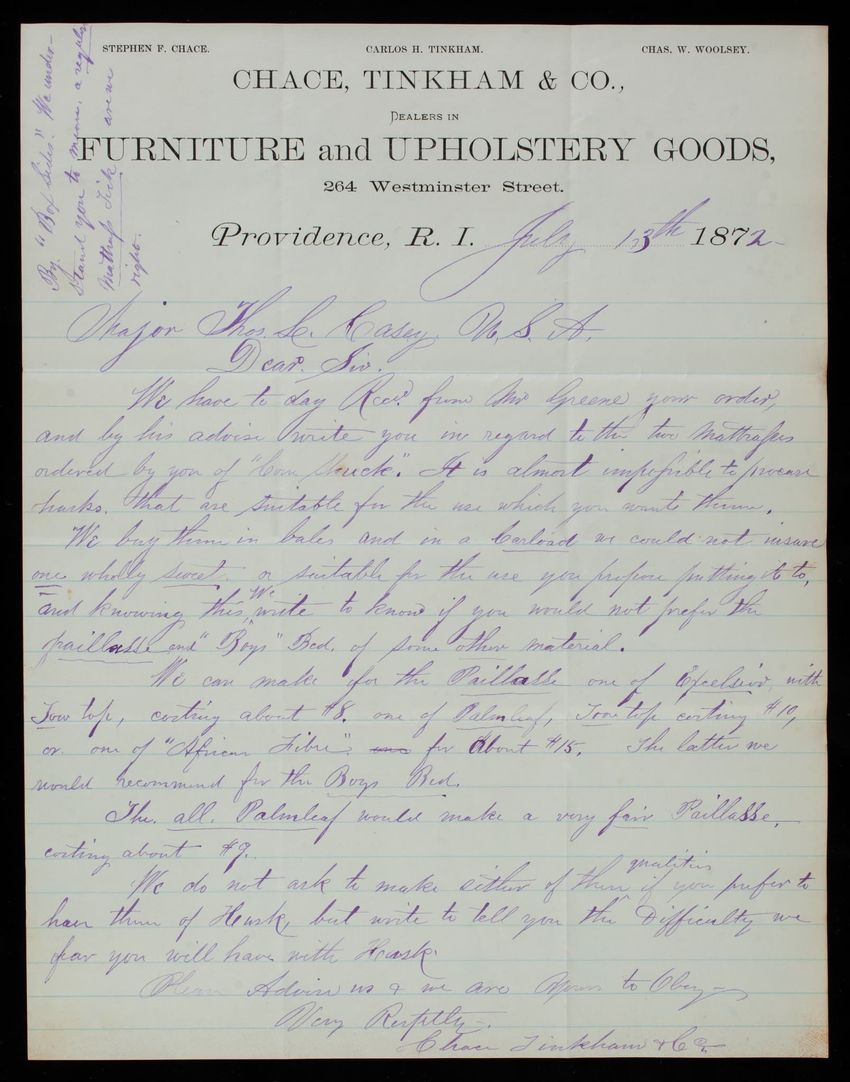 STEPHEN F. CHACE. CARLOS H. TINKHAM. CHAS. W. WOOLSEY.
CHACE, TINKHAM & CO.,
DEALERS IN
FURNITURE and UPHOLSTERY GOODS,
264 Westminster Street.
Providence, R. I. July 13th 1872-
By "Box Sides." We under-
stand you to mean, a regular
Mattrass Tick are we
right.
Major Thos. L. Casey, U. S. A.
Dear. Sir.
We have to day Recd. from Mr Greene your order,
and by his advise write you in regard to the two Mattrasses
ordered by you of "Corn Shuck". It is almost impossible to procure
husks. that are suitable for the use which you want them.
We buy them in bales and in a Carload we could not insure
one wholly sweet. or suitable for the use you propose putting it to,
and knowing this, We write to know if you would not prefer the
paillasse and "Boys" Bed. of some other material.
We can make for the Paillasse one of Excelsior, with
Tow top, costing about $8. one of Palmleaf, Tow top costing $10,
or one of "African Fibre". for about $15. The latter we
would recommend for the Boys Bed.
The. all. Palmleaf would make a very fair Paillasse,
costing about $9.
We do not ask to make either of these qualities if you prefer to
have them of Husk, but write to tell you the Difficulty we
fear you will have with Husk.
Please Advise us & we are Yours to Obey-
Very Resptly-.
Chace Tinkham & Co.